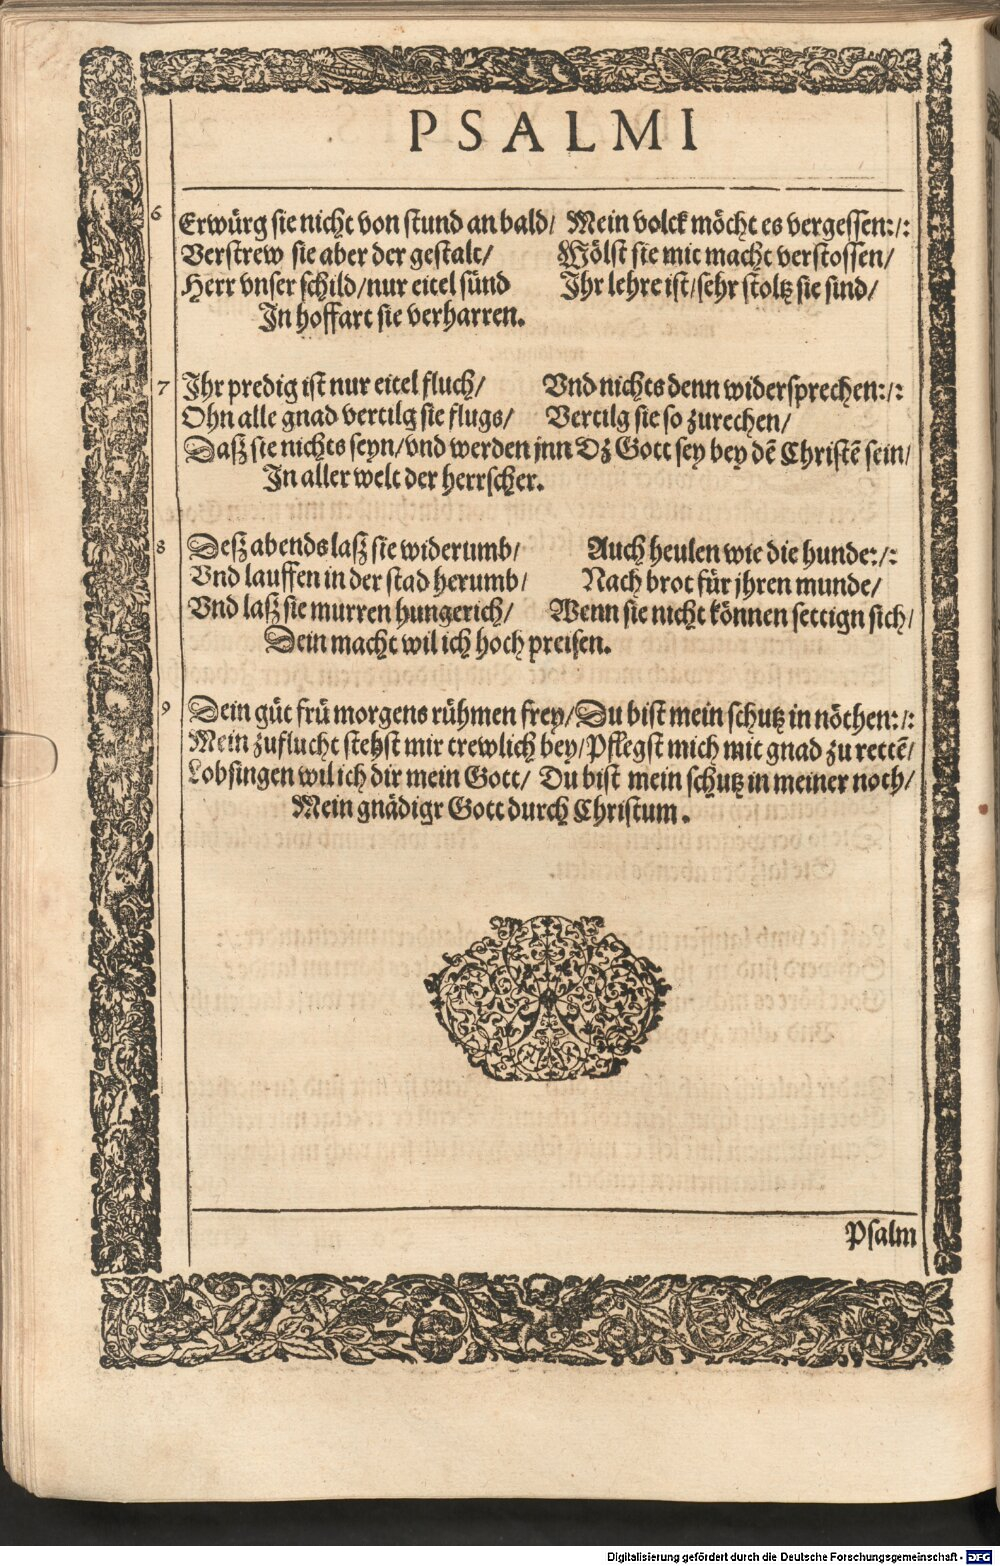 PSALMI
6 Erwürg sie nicht von stund an bald/ Mein volck möcht es vergessen:/:
Verstrew sie aber der gestalt/ Wölst sie mit macht verstossen/
Herr vnser schild/nur eitel sünd Ihr lehre ist/sehr stoltz sie sind/
In hoffart sie verharren.
7 Ihr predig ist nur eitel fluch/ Vnd nichts denn widersprechen:/:
Ohn alle gnad vertilg sie flugs/ Vertilg sie so zurechen/
Daß sie nichts seyn/vnd werden jnn Dz Gott sey bey dē Christē sein/
In aller welt der herrscher.
8 Deß abends laß sie widerumb/ Auch heulen wie die hunde:/:
Vnd lauffen in der stad herumb/ Nach brot für jhren munde/
Vnd laß sie murren hungerich/ Wenn sie nicht können settign sich/
Dein macht wil ich hoch preisen.
9 Dein güt frü morgens rühmen frey/Du bist mein schutz in nöthen:/:
Mein zuflucht stehst mir trewlich bey/Pflegst mich mit gnad zu rettē/
Lobsingen wil ich dir mein Gott/ Du bist mein schutz in meiner noth/
Mein gnädigr Gott durch Christum.
Psalm
Digitalisierung gefördert durch die Deutsche Forschungsgemeinschaft - DFG